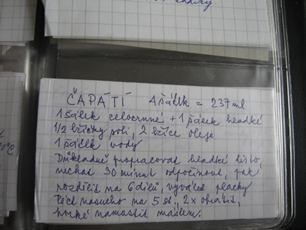 ČAPÁTÍ 1 šálek = 237 ml
1 šálek celozrnné + 1 šálek hladké
1/2 lžičky soli, 2 lžíce oleje
1 šálek vody
Důkladně propracovat hladké těsto,
nechat 30 minut odpočinout, pak
rozdělit na 6 dílů, vyválet placky
Péct nasucho na 5 st., 2x obrátit,
horké namastit máslem.